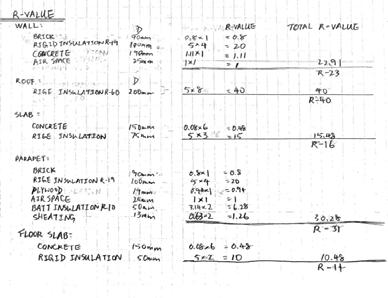 R-VALUE
WALL: D R-VALUE TOTAL R-VALUE
BRICK 90mm 0.8×1 =0.8
RIGID INSULATION R-19 100mm 5×4 =20
CONCRETE 190mm 1.11×1 =1.11
AIR SPACE 25mm 1×1 =1 22.91
R-23
ROOF: D
RIGE INSULATION R-40 200mm 5×8 =40 40
R-40
SLAB:
CONCRETE 150mm 0.08×6 =0.48
RIGE INSULATION 75mm 5×3 =15 15.48
R-16
PARAPET:
BRICK 90mm 0.8×1 =0.8
RIGE INSULATION R-19 100mm 5×4 =20
PLYWOOD 19mm 0.94×1 =0.94
AIRSPACE 1×1 =1
BATT INSULATION R-10 50mm 3.14×2 =6.28
SHEATING 13mm 0.63×2 =1.26 30.28
R-31
FLOOR SLAB:
CONCRETE 150mm 0.08×6 =0.48
RIGID INSULATION 50mm 5×2 =10 10.48